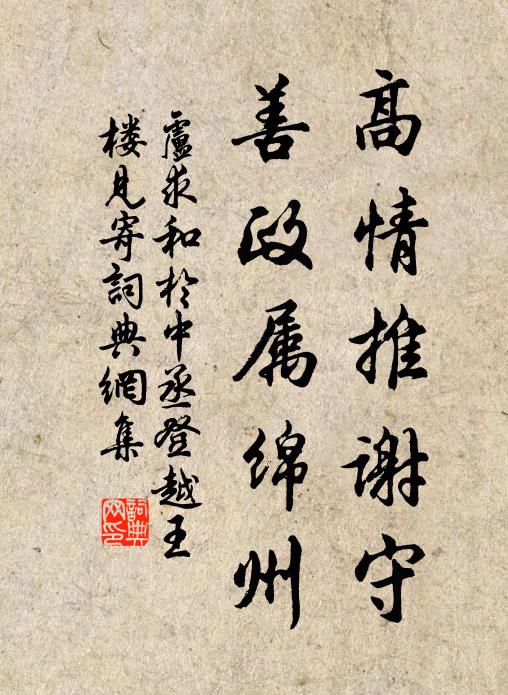 高情推谢守
善政属绵州
盧求和於中丞登越王
楼見寄詞典網集
詞典
网印